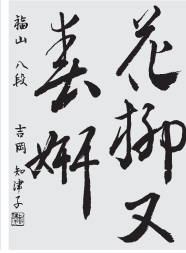 花柳又
春妍
福山 八段 吉岡 知津子